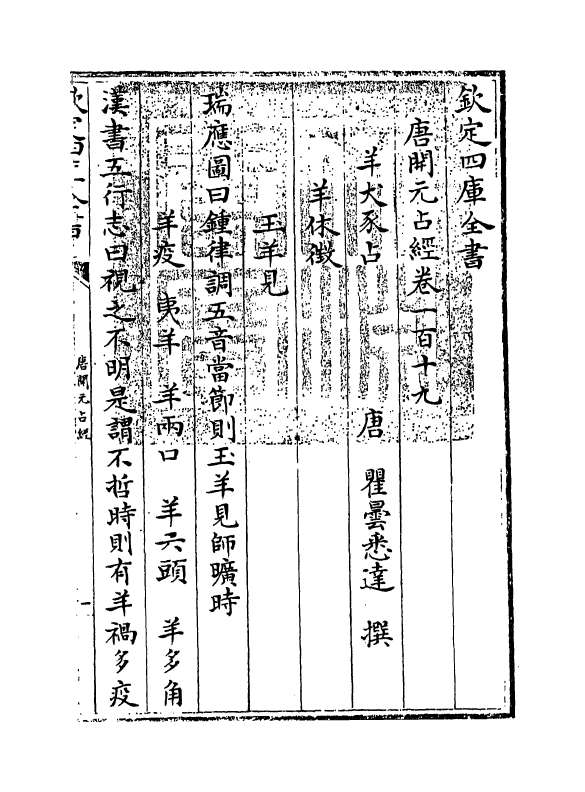 欽定四庫全書
唐開元占經卷一百十九
唐 瞿曇悉達 撰
羊犬豕占
羊休徵
玉羊見
瑞應圖曰鍾律調五音當節則玉羊見師曠時
羊疫 夷羊 羊兩口 羊六頭 羊多角
漢書五行志曰視之不明是謂不哲時則有羊禍多疫
唐開元占經
一